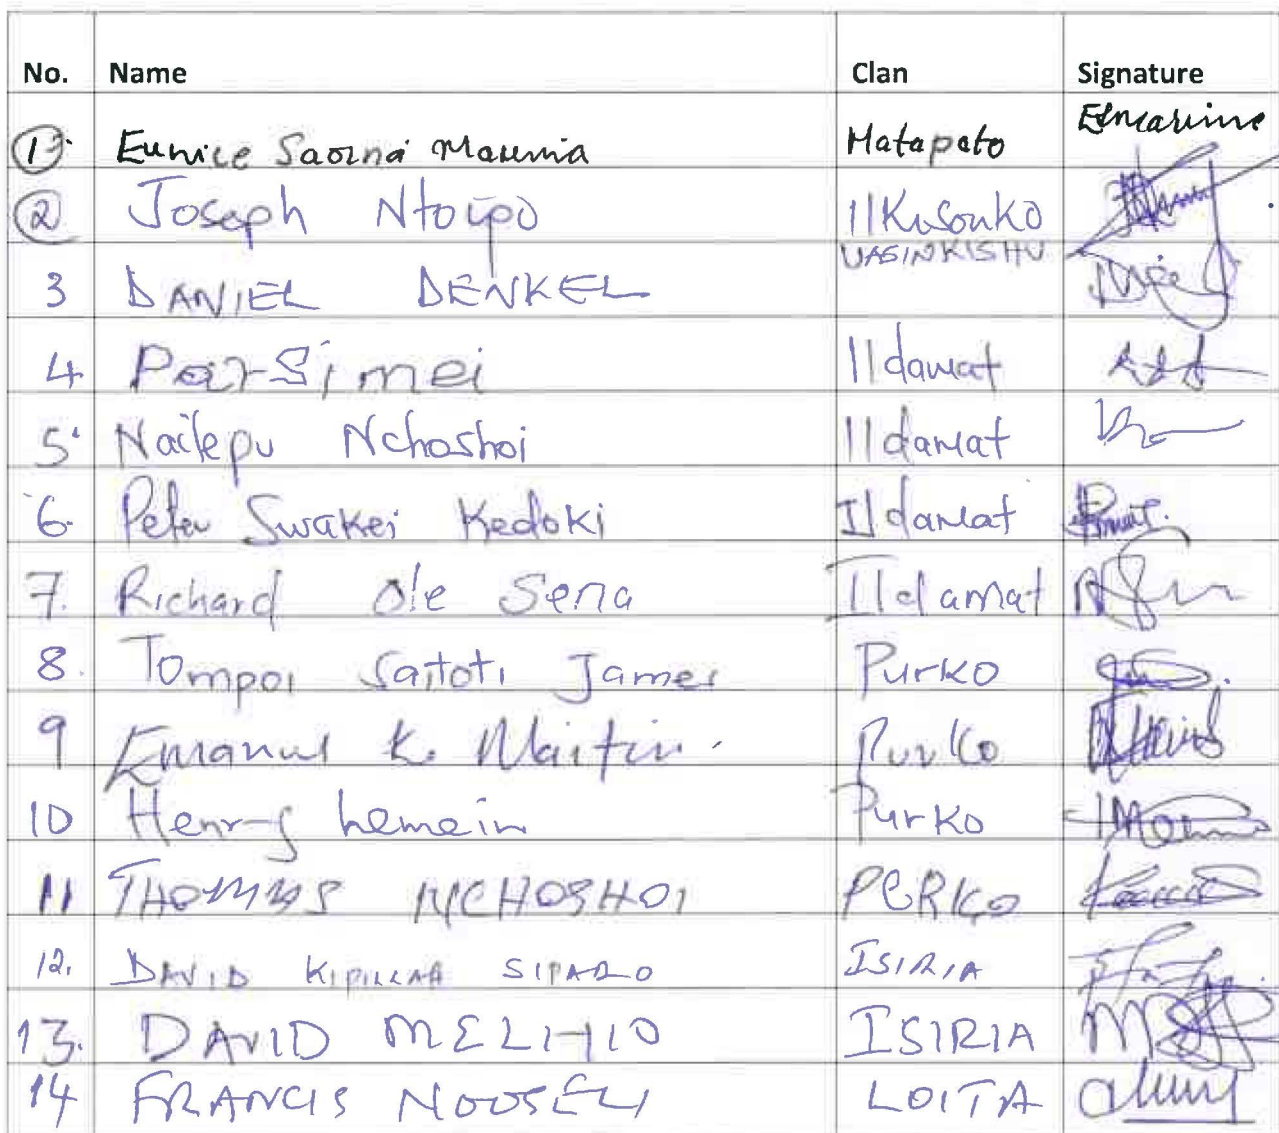 No. Name Clan Signature
1. Eunice Saoına Marima Matapato
2 Joseph Ntoipo IlKisonko
3 DANIEL DENKEL UASINKISHU
4. Parsimei Ildamat
5. Nailepu Nchoshoi Ildamat
6. Peter Swakei Kedoki Ildamat
7. Richard Ole Sena Ildamat
8. Tompoi Saitoti James Purko
9 Emanuel K. Maitin. Purko
10 Henry Lemein Purko
11 THOMAS NCHOSHOI PURKO
12. DAVID SIPARO ISIRIA
13. DAVID MELIHIO ISIRIA
14 FRANCIS NOOSELI LOITA